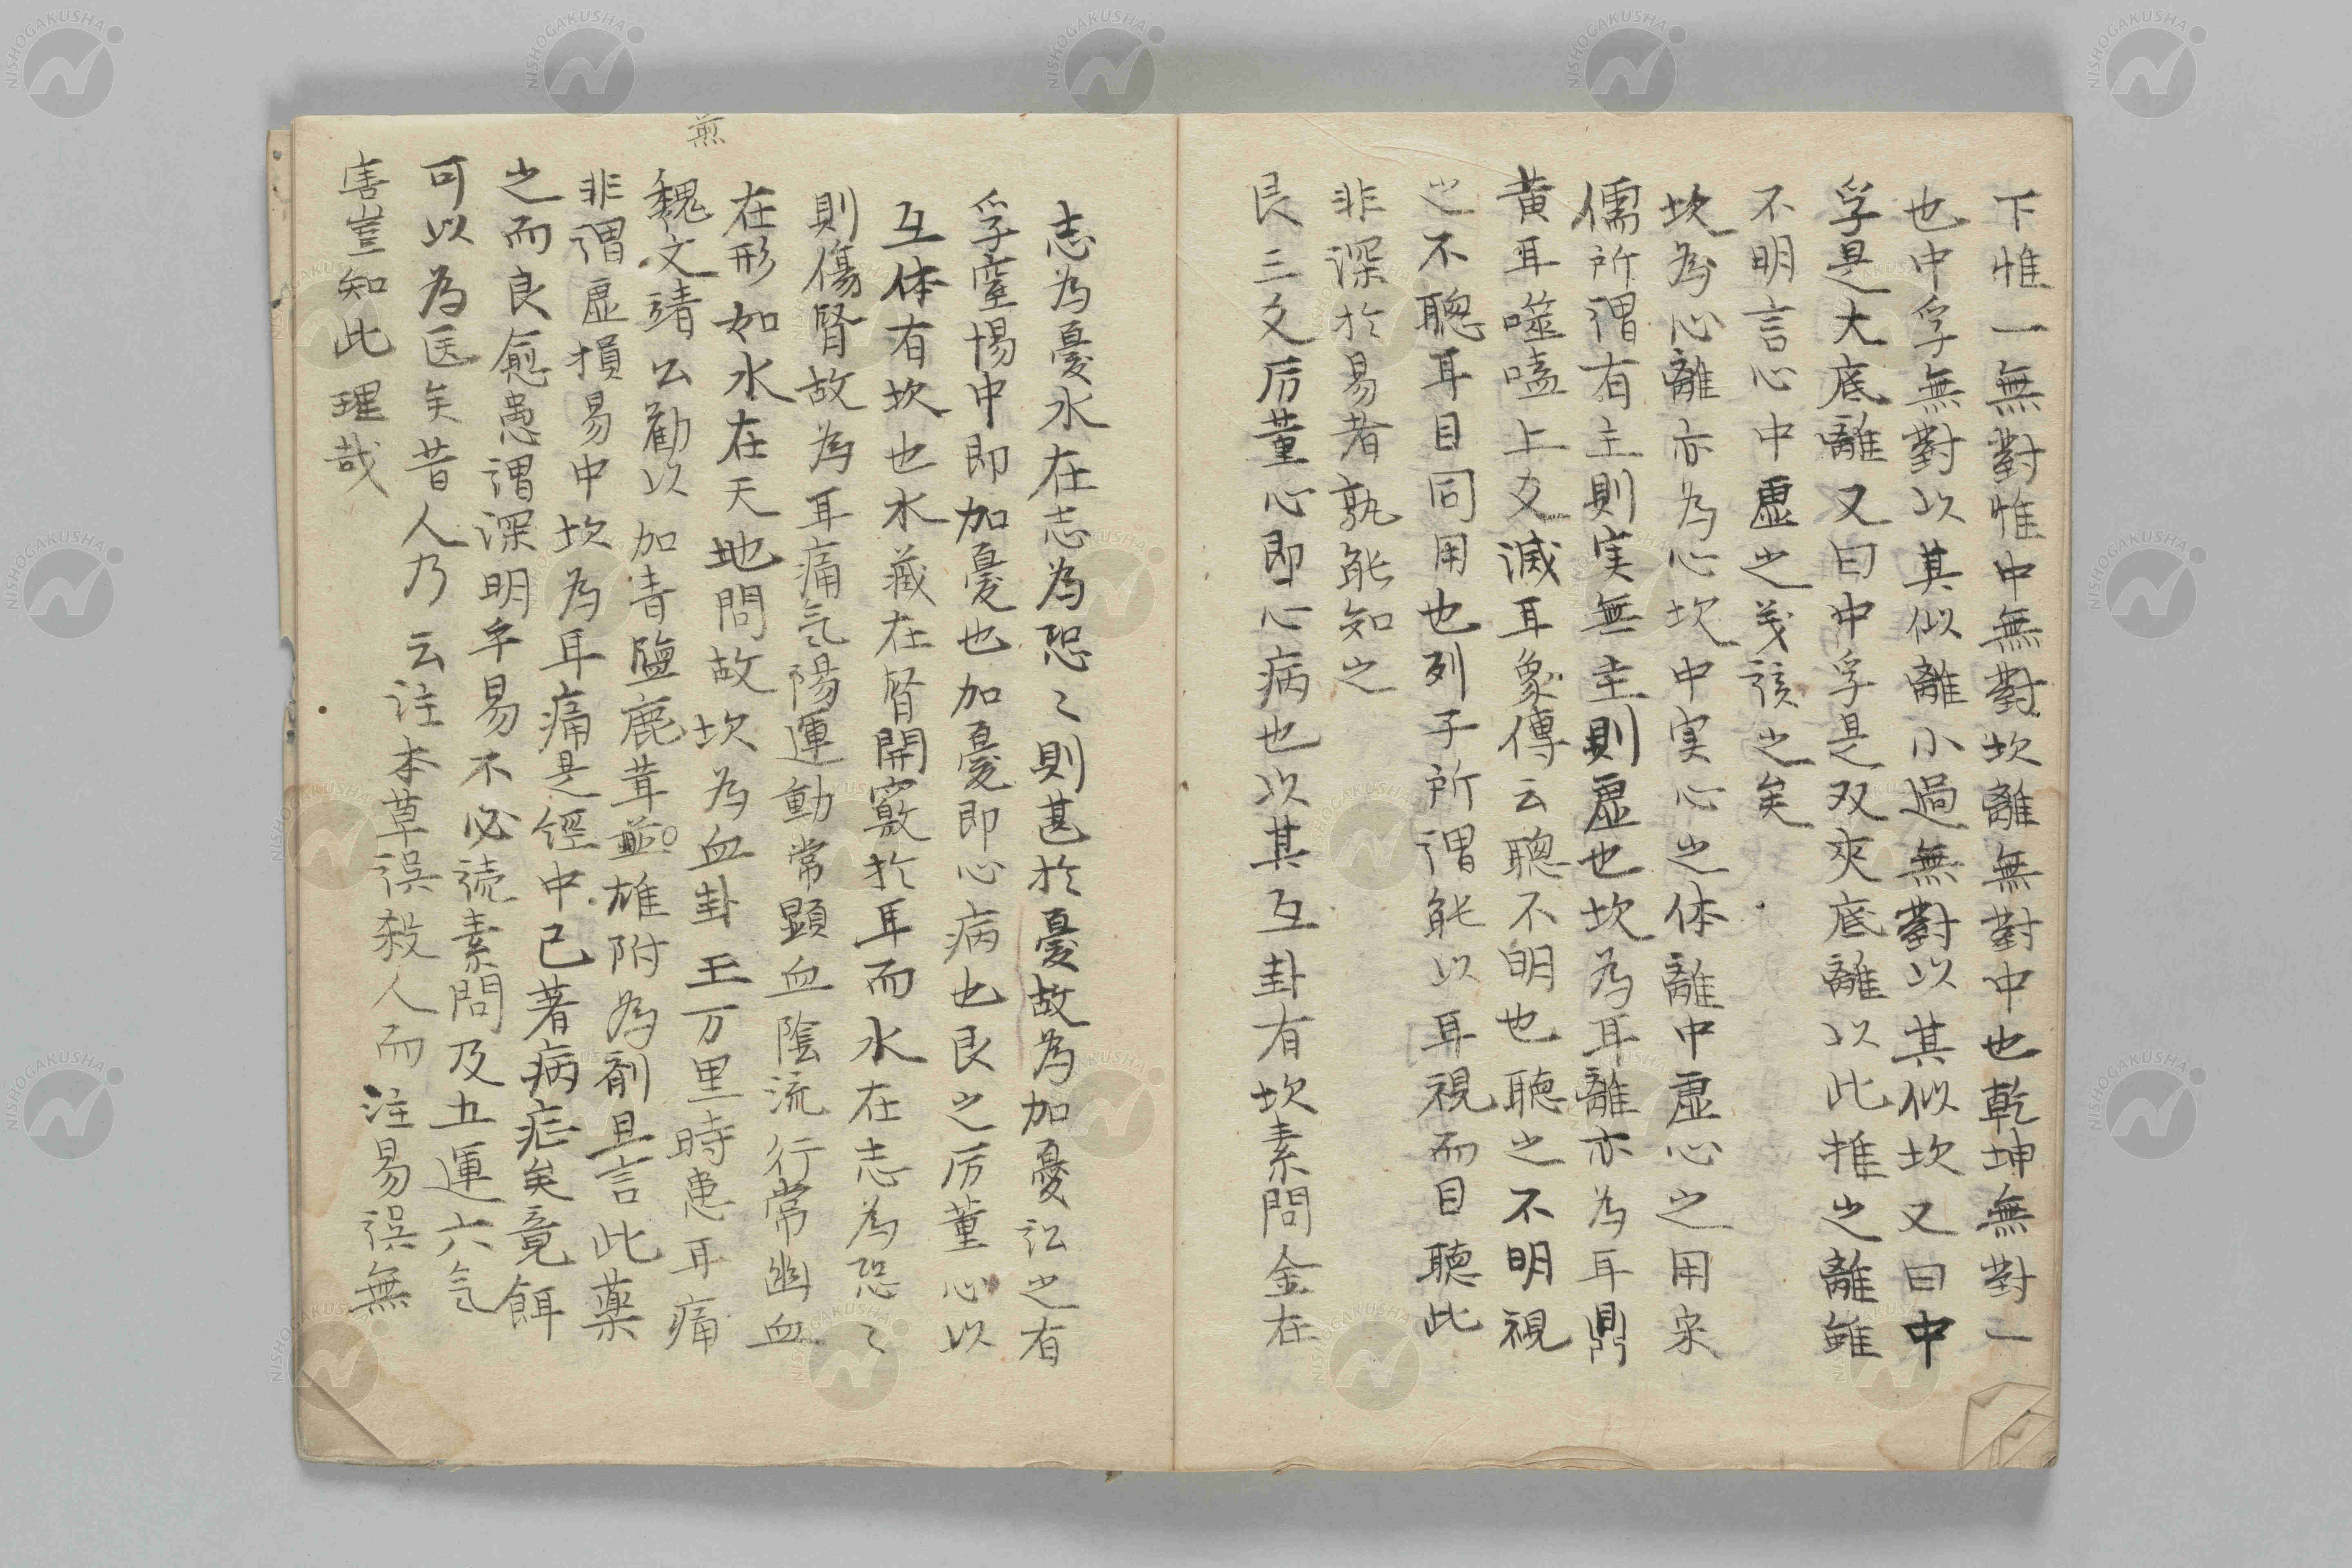 下惟一無對惟中無對坎離無對中也乾坤無對一
也中孚無對以其似離小過無對以其似坎又曰中
孚是大底離又曰中孚是双夾底離以此推之離雖
不明言心中虛之義該之矣
坎為心離亦為心坎中実心之体離中虛心之用宋
儒所謂有主則実無主則虛也坎為耳離亦為耳鼎
黄耳噬嗑上爻滅耳象傳云聰不明也聴之不明視
之不聰耳目同用也列子所謂能以耳視而目聽此
非深於易者孰能知之
艮三爻厉薰心即心病也以其互卦有坎素問金在
志為憂水在志為恐〻則甚於憂故為加憂訟之有
孚窒惕中即加憂也加憂即心病也艮之厉薰心以
互体有坎也水藏在腎開竅於耳而水在志為恐〻
則傷腎故為耳痛气陽運動常顕血陰流行常幽血
在形如水在天地問故坎為血卦王万里時患耳痛
魏文靖公勸以加青鹽鹿茸煎雄附為剤且言此藥
非謂虛損易中坎為耳痛是経中已著病症矣竟餌
之而良愈愚謂深明乎易不必読素問及五運六气
可以為医矣昔人乃云注本草誤殺人而注易誤無
害豈知此理哉
煎
NISHOGAKUSHA